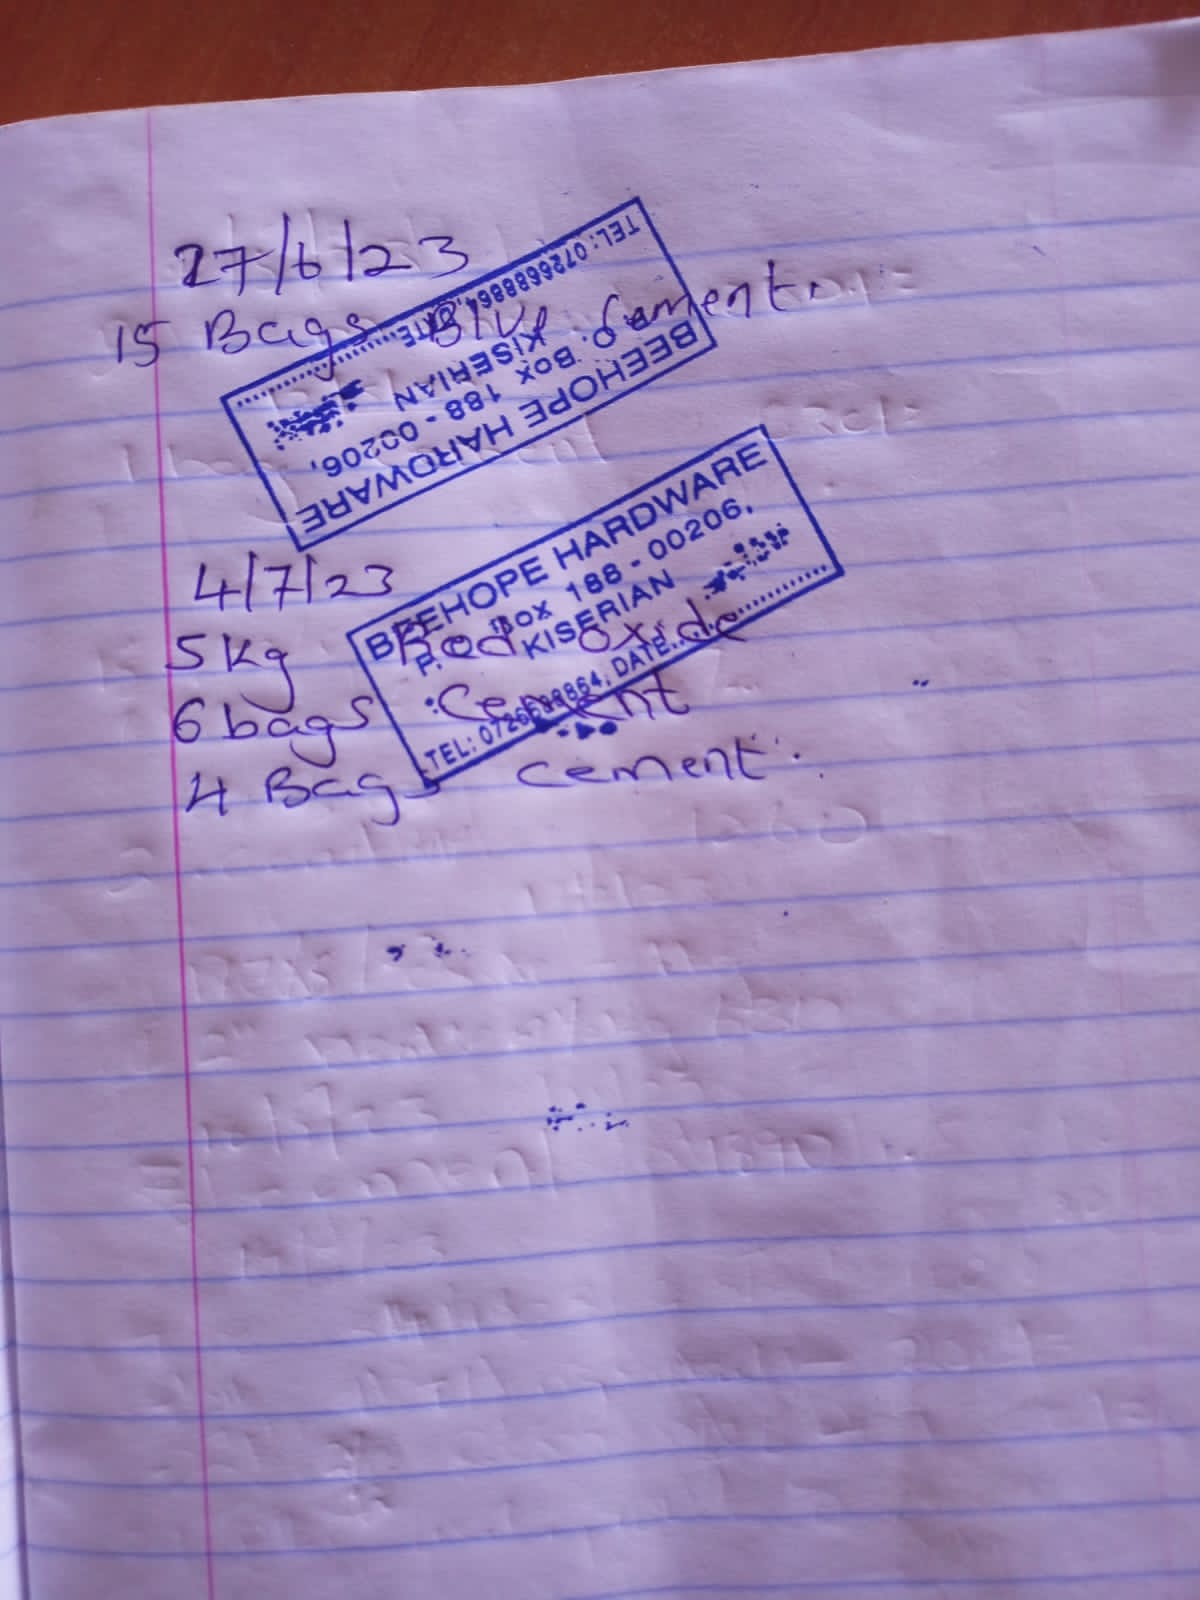 27/6/23
15 Bags Blue Cement.
BEEHOPE HARDWARE
P. O. BOX 188 - 00206,
KISERIAN
TEL: 0726688864, DATE
4/7/23
5 kg Red oxide
6 bags Cement
4 Bags cement.
BEEHOPE HARDWARE
P. BOX 188 - 00206,
KISERIAN
TEL: 0726688864, DATE